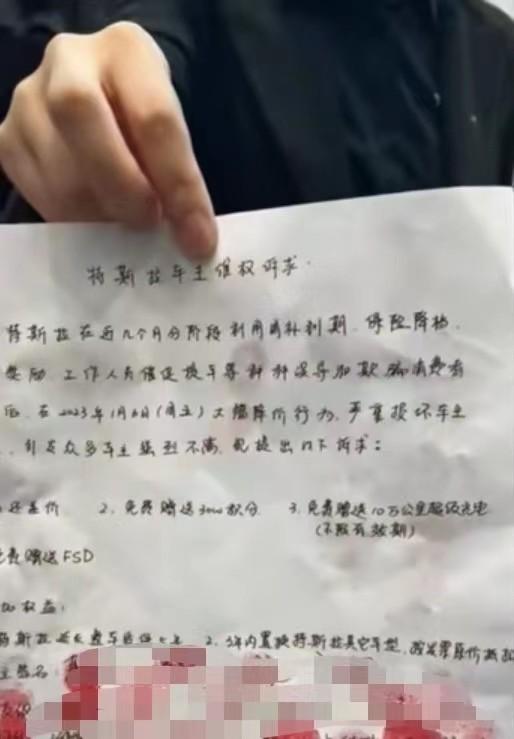 特斯拉车主维权诉求.
特斯拉在近几个月分阶段利用国补到期、保险降档、
奖励、工作人员催促提车等种种误导加欺骗消费者
后,在2023年1月6日(周五)大幅降价行为,严重损坏车主
,引发众多车主强烈不满,现提出以下诉求:
还差价 2、免费赠送3000积分 3、免费赠送10万公里超级充电
(不限有效期)
免费赠送FSD
权益:
特斯拉 2、3年内置换特斯拉其它车型,按发票原价抵扣
主签名: